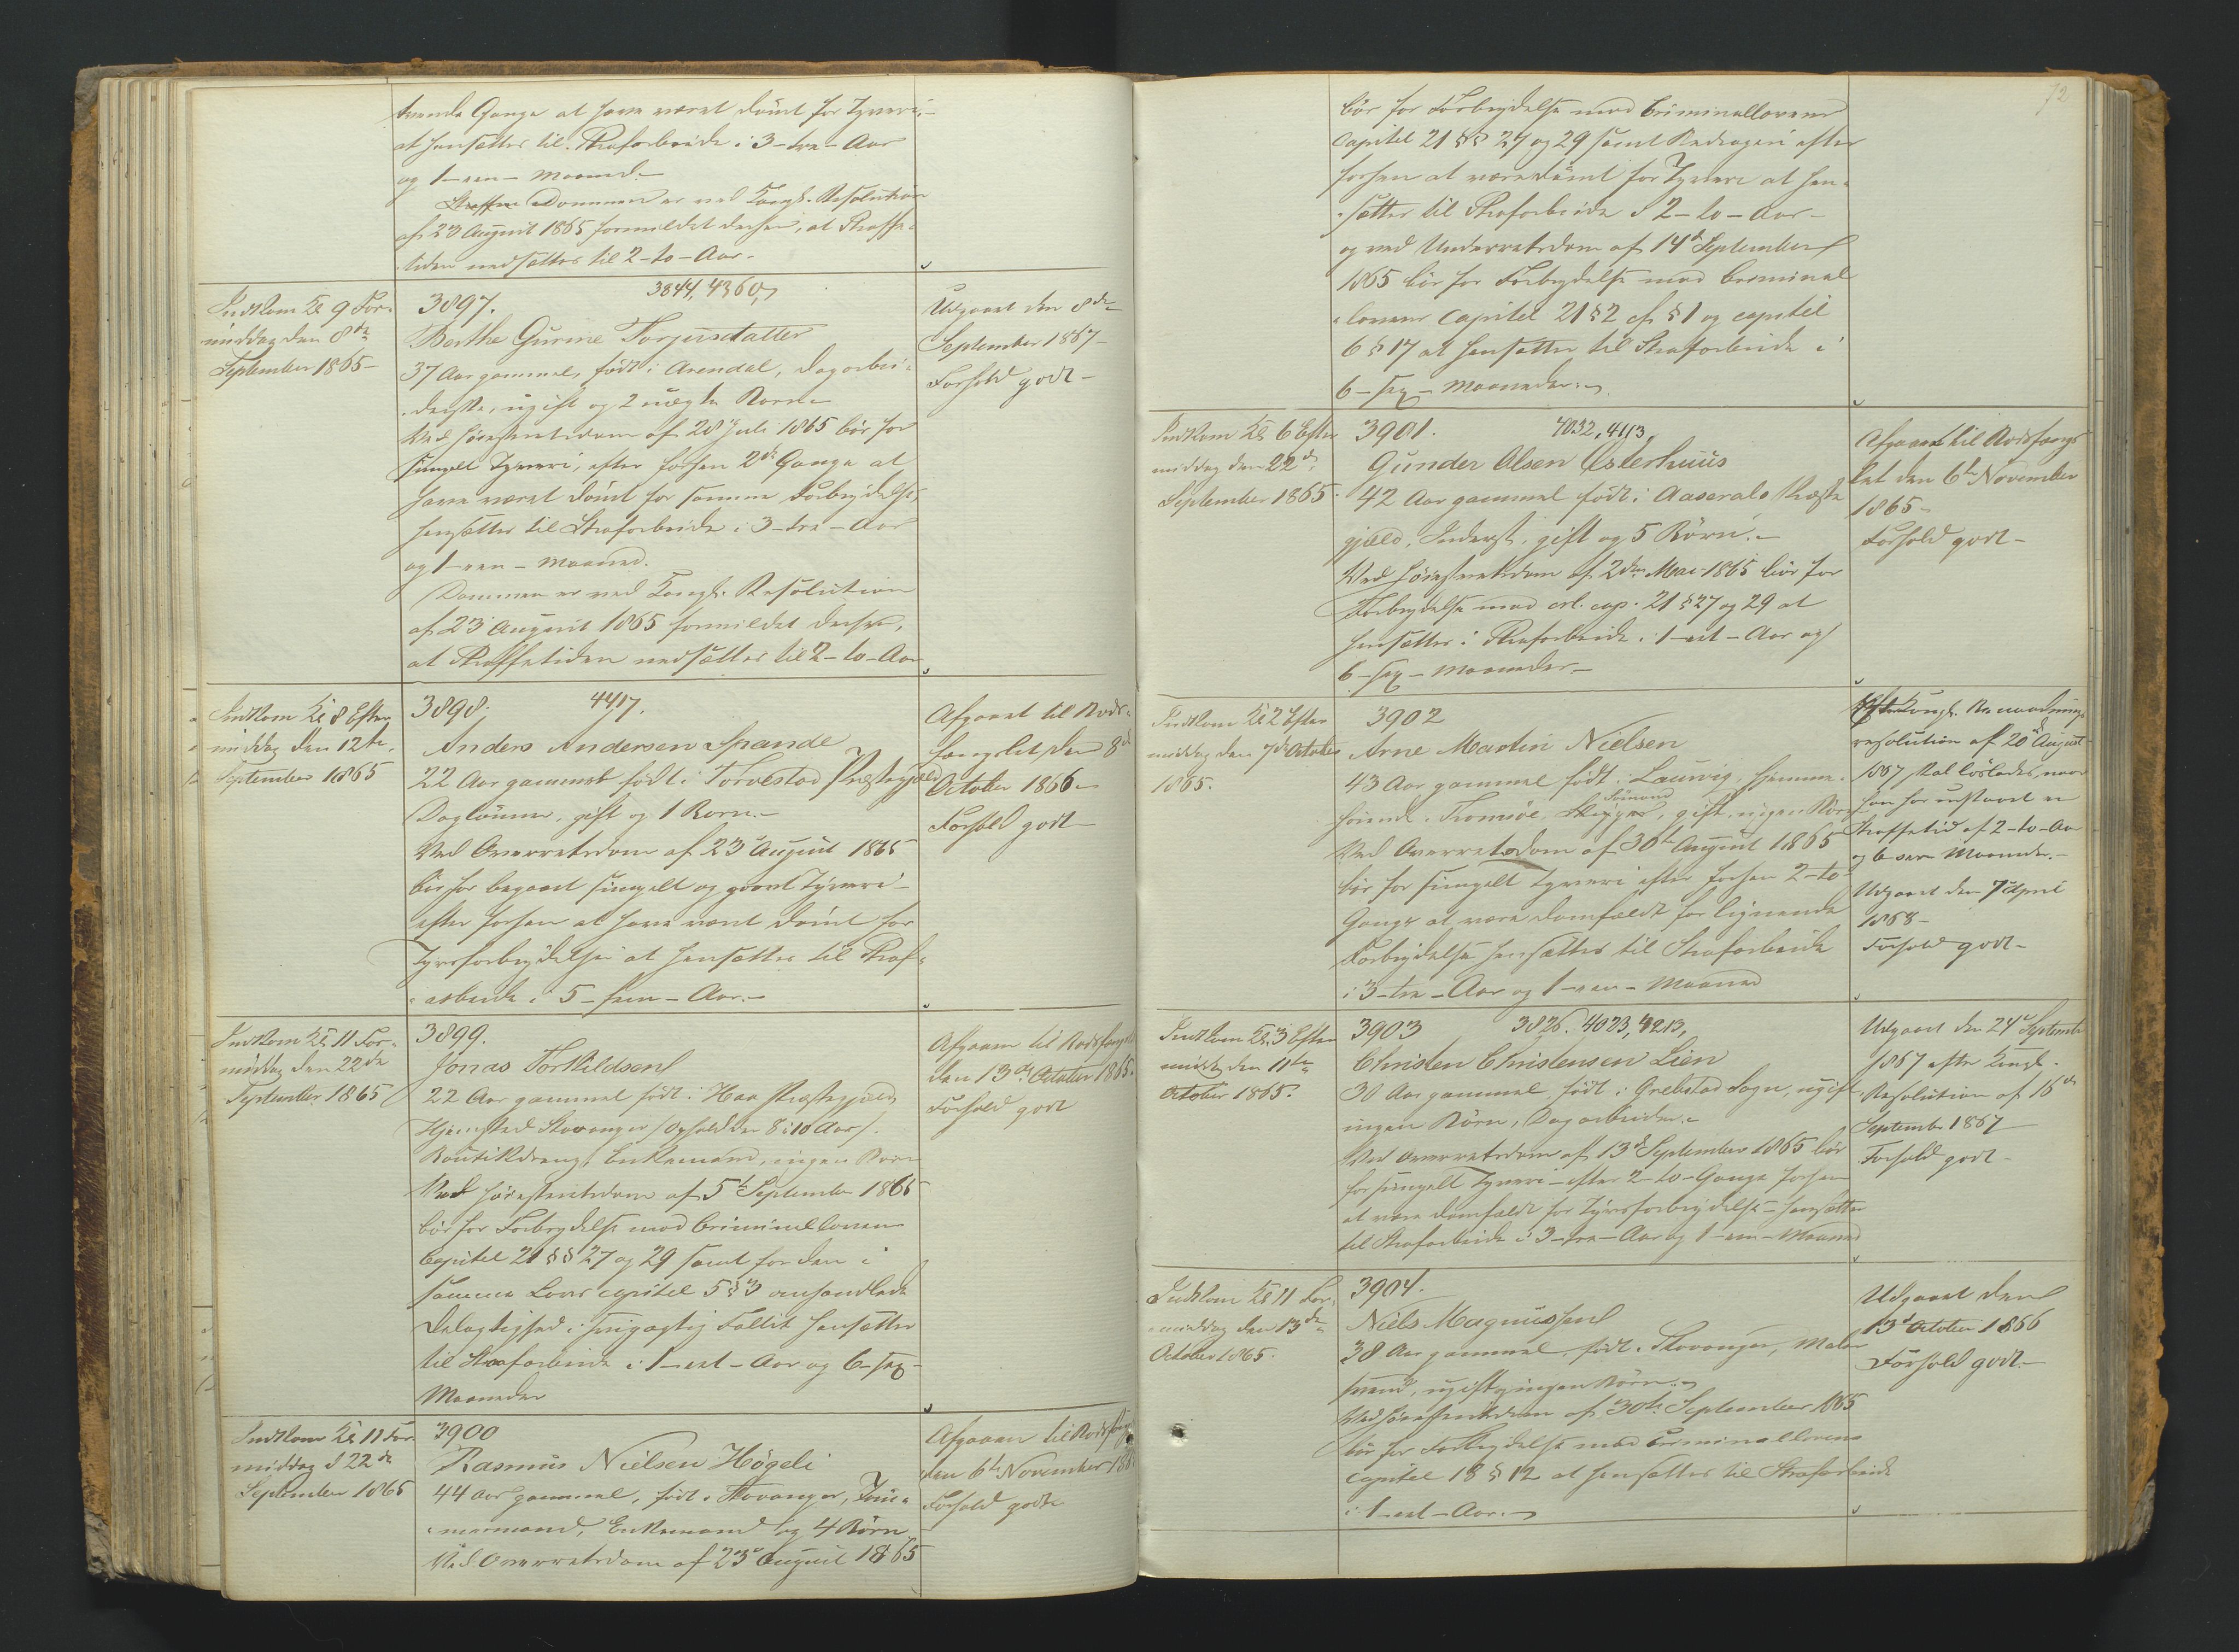 tvende Gange at have været dömt for Tyveri,-
at hensættes til Strafarbeide i 3-tre-Aar
og 1-een-Maaned.-
Straffen Dommen er ved Kongl. Resolution
af 23 August 1865 formildet derhen, at Straffe-
tiden nedsættes til 2-to-Aar-
Indkom Kl 9 For-
middag den 8de
September 1865-
3897. 3844, 4360,
Berthe Gurine Torjusdatter
37 Aar gammel, født i Arendal, Dagarbei-
derske, ugift og 2 uægte Børn
Ved Høiesteretsdom af 28 Juli 1865 bör for
simpelt Tyveri, efter forhen 2de Gange at
have været dömt for samme Forbrydelse,
hensættes til Strafarbeide i 3-tre-Aar
og 1-een-Maaned.
Dommen er ved Kongl. Resolution
af 23 August 1865 formildet derhen,
at Straffetiden nedsættes til 2-to-Aar
Udgaaet den 8de
September 1867-
Forhold godt-
Indkom Kl 8 Efter-
middag den 12te
September 1865
3898. 4417.
Anders Andersen Spande
22 Aar gammel født i Torvestad Præstegjæld
Daglönner, gift og 1 Barn.-
Ved Overretsdom af 23 August 1865
bör for begaaet simpelt og grovt Tyveri-
efter forhen at have været dömt for
Tyvsforbrydelse at hensættes til Straf-
arbeide i 5-fem-Aar.-
Afgaaet til Bods-
fængslet den 8de
October 1866-
Forhold godt-
Indkom Kl 11 For-
middag den 22de
September 1865
3899.
Jonas Torkildsen
22 Aar gammel født i Haa Præstegjæld
Hjemsted Stavanger (Ophold der 8 à 10 Aar).
Boutikdreng, Enkemand, ingen Børn
Ved Høiesteretsdom af 5te September 1865
bör for Forbrydelse mod Criminalloven
Capitel 21 §§ 27 og 29 samt for den i
samme Lovs Capitel 5 § 3 omhandlede
Delagtighed i svigagtig Fallit hensættes
til Strafarbeide i 1-eet-Aar og 6-sex-
Maaneder
Afgaaen til Bodsfængslet
den 13de October 1865.
Forhold godt
Indkom Kl 11 For-
middag d 22de
September 1865
3900
Rasmus Nielsen Högeli
44 Aar gammel, født i Stavanger, Töm-
mermand, Enkemand og 4 Børn
Ved Overretsdom af 23 August 1865
Afgaaen til Bodsfængs
den 6te November 186
Forhold godt
72
bör for Forbrydelse mod Criminallovens
Capitel 21 §§ 27 og 29 samt Bedrageri efter
forhen at være dömt for Tyveri at hen-
sættes til Strafarbeide i 2-to-Aar-
og ved Underretsdom af 14de September
1865 bör for Forbrydelse mod Criminal
lovens Capitel 21 § 2 cf § 1 og Capitel
6 § 17 at hensættes til Strafarbeide i
6-sex-Maaneder.-
Indkom Kl 6 Efter
middag den 22de
September 1865.
3901. 4032, 4113,
Gunder Olsen Østerhuus
42 Aar gammel født i Aaserals Præste
gjæld, Inderst, gift og 5 Børn.-
Ved Høiesteretsdom af 2den Mai 1865 bör for
Forbrydelse mod crl. cap. 21 § 27 og 29 at
hensættes i Strafarbeide i 1-eet-Aar og
6-sex-Maaneder-
Afgaaet til Bodsfængs
let den 6te November
1865-
Forhold godt-
Indkom Kl 2 Efter
middag den 7de October
1865.
3902
Arne Martin Nielsen
43 Aar gammel født i Laurvig, hjemme-
hörende i Tromsöe, Skipper, Sömand gift, ingen Börn
Ved Overretsdom af 30te August 1865
bör for simpelt Tyveri efter forhen 2-to-
Gange at være domfældt for lignende
Forbrydelse hensættes til Strafarbeide
i 3-tre-Aar og 1-een-Maaned
Efter Kongl. Benaadnings
resolution af 20 August
1867 skal löslades, naar
han har udstaaet en
Straffetid af 2-to-Aar
og 6-sex Maaneder.-
Udgaaet den 7 April
1868-
Forhold godt-
Indkom Kl. 3 Efter
midd. den 11te
October 1865.
3903 3826. 4023, 4213,
Christen Christensen Lien
30 Aar gammel, født i Grebstad Sogn, ugift
ingen Börn, Dagarbeider.-
Ved Overretsdom af 13de September 1865 bör
for simpelt Tyveri-efter 2-to-Gange forhen
at være domfældt for Tyvsforbrydelse-hensættes
til Strafarbeide i 3-tre-Aar og 1-een-Maaned
Udgaaet den 24de Septemb
1867 efter Kongl.
Resolution af 16de
September 1867
Forhold godt-
Indkom Kl 11 For-
middag den 13de
October 1865.
3904.
Niels Magnussen
38 Aar gammel, født i Stavanger, Maler
svend, ugift og ingen Börn.-
Ved Høiesteretsdom af 30te September 1865
bör for Forbrydelse mod Criminallovens
Capitel 18 § 12 at hensættes til Strafarbeide
i 1-eet-Aar.-
Udgaaet den
13de October 1866
Forhold godt.-